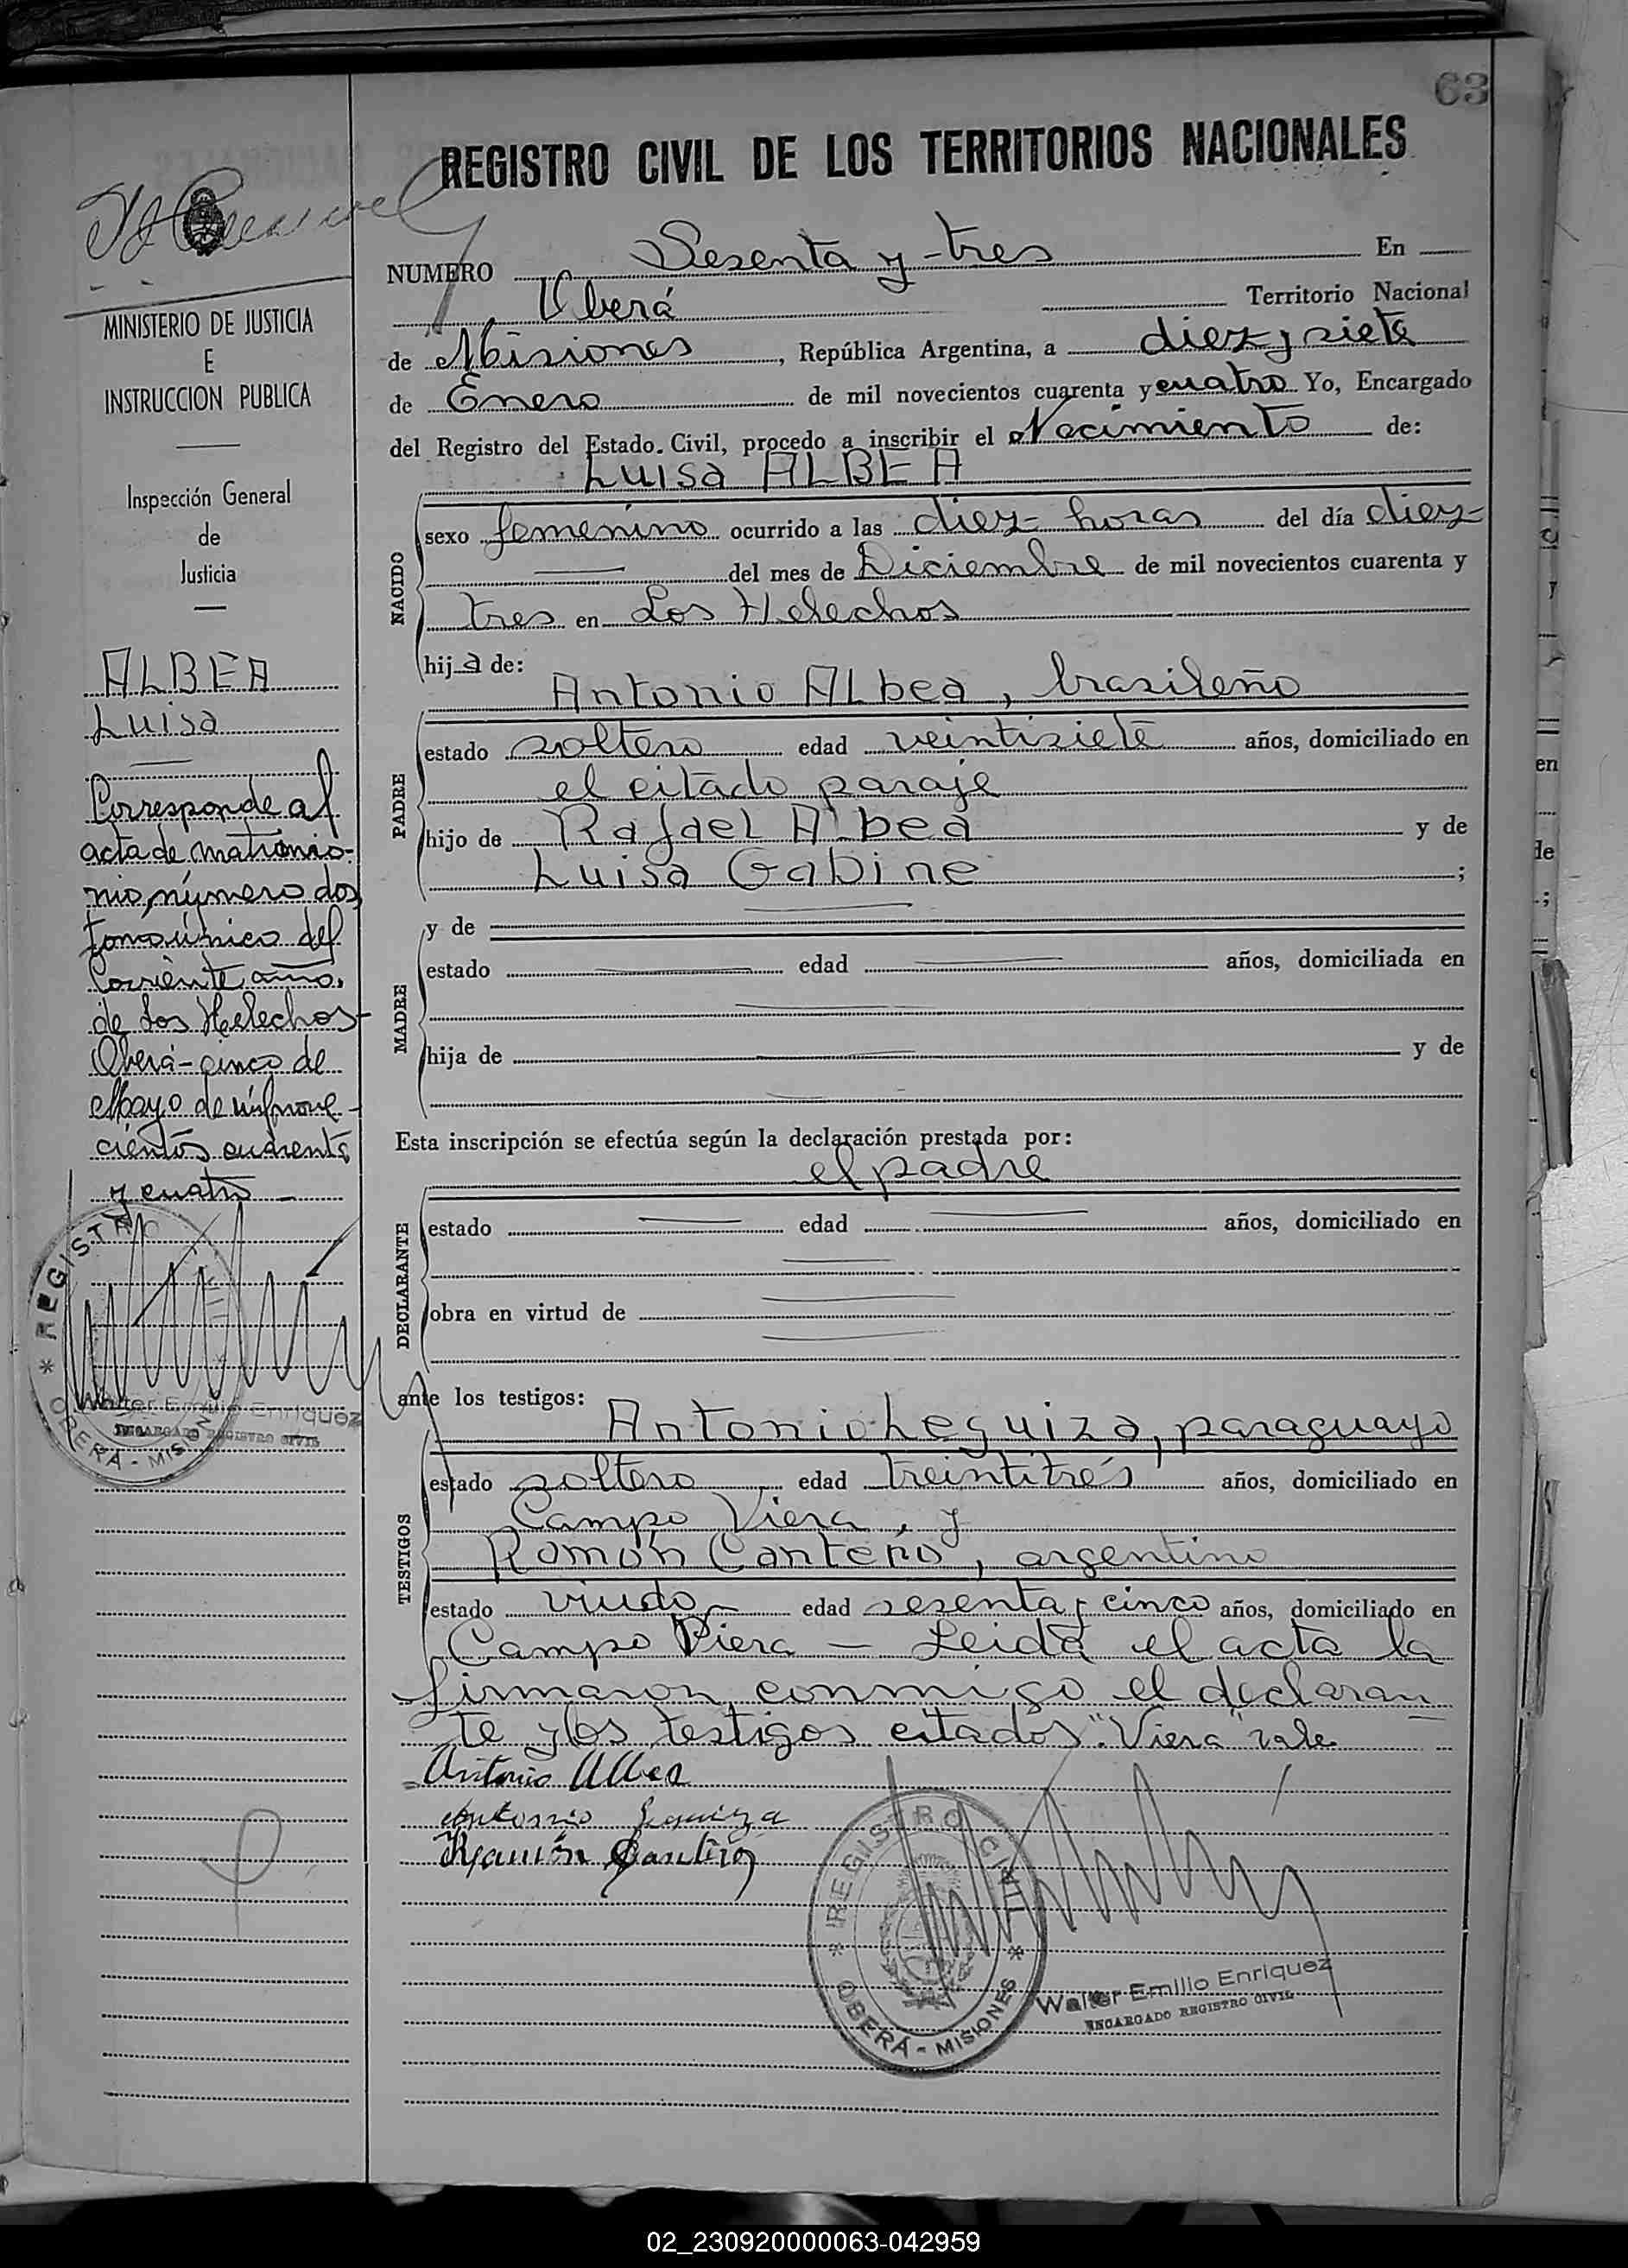 63
REGISTRO CIVIL DE LOS TERRITORIOS NACIONALES
NUMERO Sesenta y tres En
Oberá Territorio Nacional
de Misiones, República Argentina, a diez y siete
de Enero de mil novecientos cuarenta y cuatro Yo, Encargado
del Registro del Estado Civil, procedo a inscribir el Nacimiento de:
Luisa ALBEA
NACIDO
sexo femenino ocurrido a las diez horas del día diez
del mes de Diciembre de mil novecientos cuarenta y
tres en Los Helechos
hija de:
Antonio ALbea, brasileño
PADRE
estado soltero edad veintisiete años, domiciliado en
el citado paraje
hijo de Rafael Albea y de
Luisa Gabine ;
MADRE
y de
estado edad años, domiciliada en
hija de y de
Esta inscripción se efectúa según la declaración prestada por:
el padre
DECLARANTE
estado edad años, domiciliado en
obra en virtud de
ante los testigos:
Antonio Leguiza, paraguayo
TESTIGOS
estado soltero edad treintitrés años, domiciliado en
Campo Viera, y
Román Cantero, argentino
estado viudo edad sesenta y cinco años, domiciliado en
Campo Viera - Leida el acta la
firmaron conmigo el declaran
te y los testigos citados "Viera" vale
Antonio Albea
Antonio Leguiza
Ramón Cantero
REGISTRO CIVIL
OBERÁ - MISIONES
Walter Emilio Enriquez
ENCARGADO REGISTRO CIVIL
MINISTERIO DE JUSTICIA
E
INSTRUCCION PUBLICA
Inspección General
de
Justicia
ALBEA
Luisa
Corresponde al
acta de matrimo-
nio, número dos
tomo único del
corriente año,
de Los Helechos-
Oberá - cinco de
Mayo de mil nove-
cientos cuarenta
y cuatro
REGISTRO CIVIL
OBERÁ - MISIONES
Walter Emilio Enriquez
ENCARGADO REGISTRO CIVIL
en
de
;
02_230920000063-042959